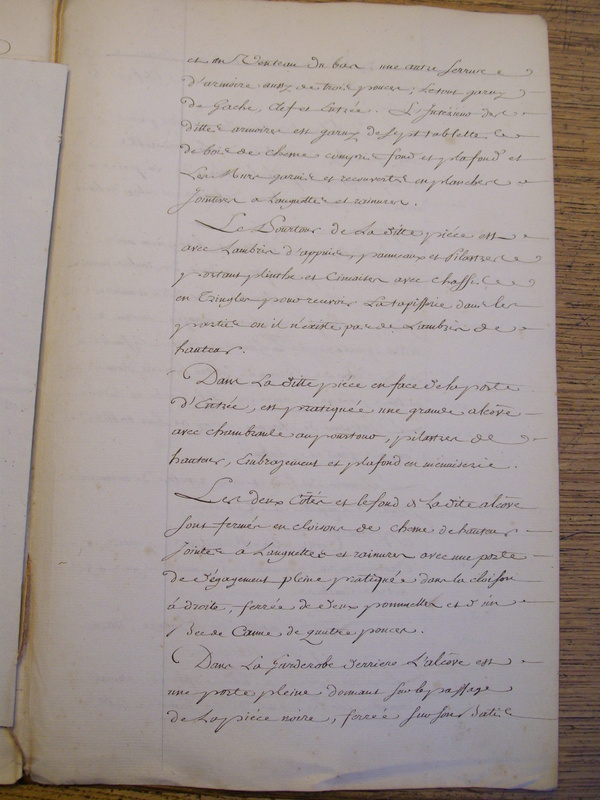 et au Venteau du bas une autre serrure
d'armoire aussy de trois pouces, le tout garny
de Gache, clef et Entrée. L'Interieur des
dittes armoires est garny de sept tablettes
de bois de chesne compris fond et plafond et
Les Murs garnis et recouverts en planches
Jointives a Languettes et rainures.
Le Pourtour de La ditte piéce est
avec Lambris d'appuis, panneaux et Pilastres
portant plinthe et Cimaises avec chassis
en Tringles pour recevoir La tapisserie dans les
parties ou il n'éxiste pas de Lambris de
hauteur.
Dans La ditte piéce en face de la porte
d'Entrée, est pratiquée une grande alcôve
avec chambranle au pourtour, pilastres de
hauteur, Embrazement et plafond en menuiserie.
Les deux Cotés et le fond de La dite alcôve
sont fermés en cloisons de chesne de hauteur
Jointes à Languettes et rainures avec une porte
de dégagement pleine pratiquée dans la cloison
à droite, ferrée de deux pommelles et d'un
Bec de Canne de quatre pouces.
Dans La Garderobe derriere L'alcôve est
une porte pleine donnant sur le passage
de La piéce noire, ferrée sur son